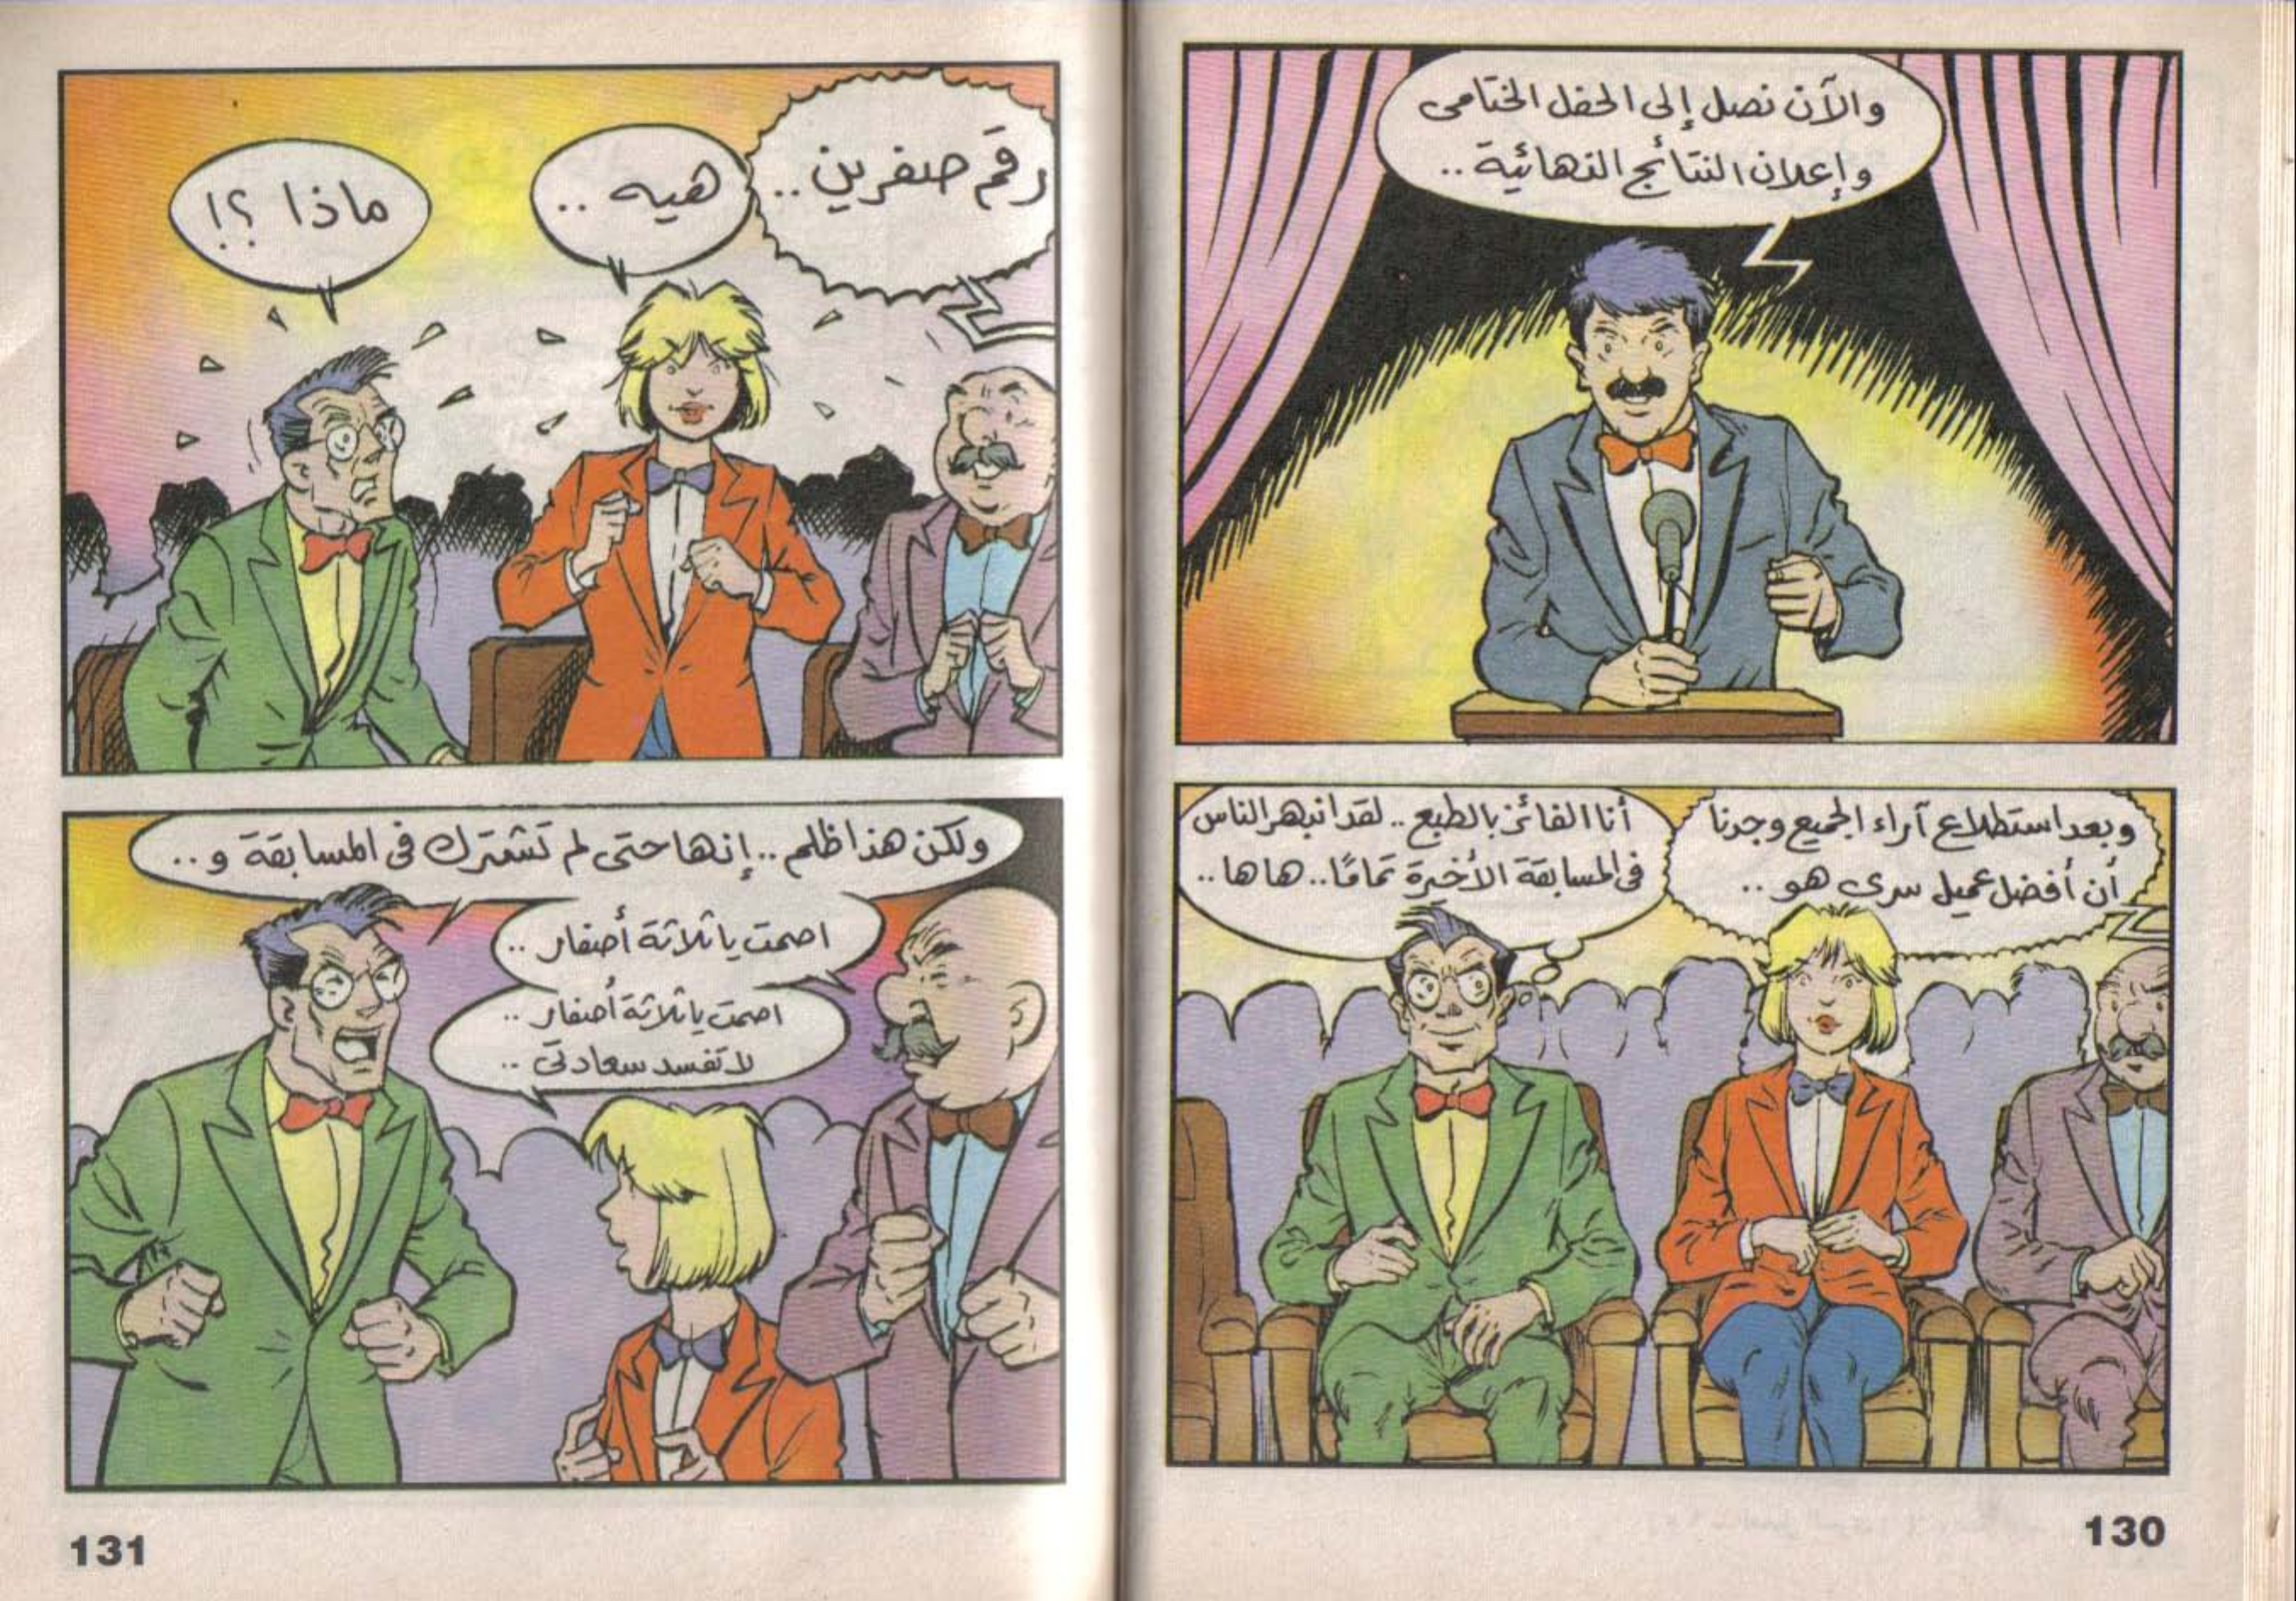 والآن نصل إلى الحفل الختامى
وإعلان النتائج النهائية ..
وبعد استطلاع آراء الجميع وجدنا
أن أفضل عميل سرى هو ..
أنا الفائز بالطبع .. لقد انبهر الناس
فى المسابقة الأخيرة تمامًا .. ها ها ..
130
رقم صفرين ..
هيه ..
ماذا ؟!
ولكن هذا ظلم .. إنها حتى لم تشترك فى المسابقة و ..
اصمت يا ثلاثة أصفار ..
اصمت يا ثلاثة أصفار ..
لا تفسد سعادتى ..
131